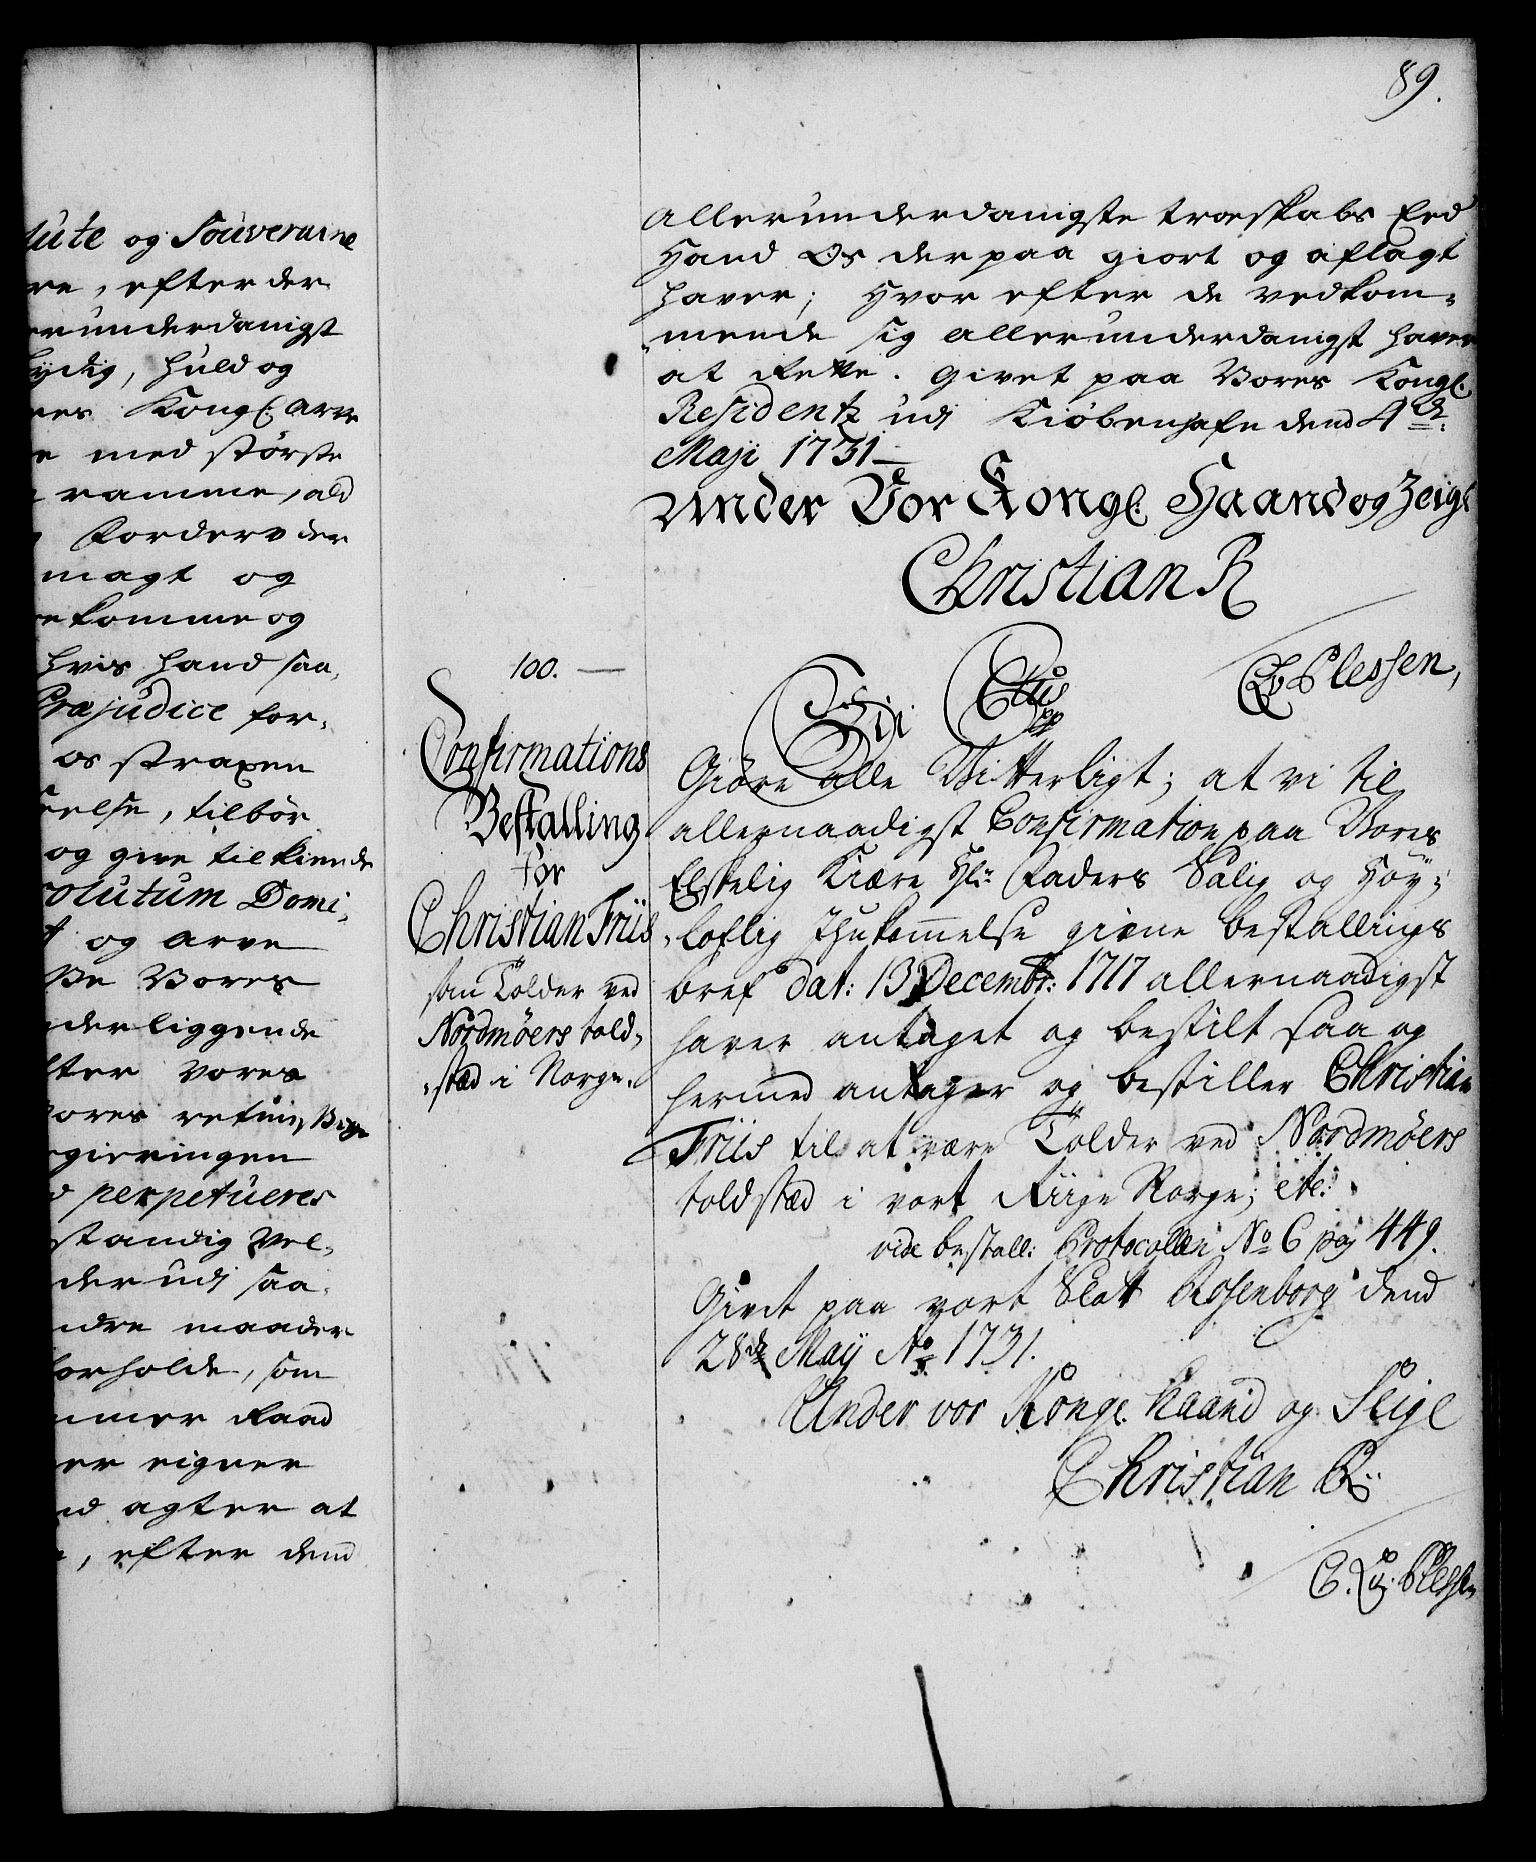 89.
lute og Souveraine
re, efter der
erunderdanigst
lydig, huld og
res Kongl: Arve
e med største
ramme, ald
Forderv der
magt og
rekomme og
hvis hand saa,
Præjudice for-
os straxen
eelse, tilbör
og give tilkiende
olutum Domi-
og arve
Vores
nderliggende
fter Vores
Vores
gieringen
perpetueres
standig Vel-
der udj saa-
ndre maader
forholde, som
mmer Raad
er eigner
nd agter at
, efter dend
allerunderdanigste troeskabs Eed
Hand Os derpaa giort og aflagt
haver; Hvor efter de vedkom-
-mende sig allerunderdanigst haver
at Rette. Givet paa Vores Kongl:
Residentz udj Kiöbenhafn dend 4de
Maji 1731
Under Vor Kongl: Haand og Zeigl
Christian R
CAvPlessen,
100.
Confirmations
Bestalling
for
Christian Friis
som Tolder ved
Nordmøers told-
-stæd i Norge.
Vi Ctus
pp
Giöre alle Vitterligt; at vi til
allernaadigst Confirmation paa Vores
Elskelig Kiære Hr: Faders Salig og Høy-
-loflig Ihukommelse givne bestallings
bref dat: 13 Decembr: 1717 allernaadigst
haver antaget og bestilt saa og
hermed antager og bestiller Christian
Friis til at være Tolder ved Nordmøers
toldstæd i vort Riige Norge; etc:
vide bestall: Protocollen No 6 pag 449.
Givet paa vort Slott Rosenborg dend
28de Maij Ao 1731.
Under vor Kongl. haand og Seigl
Christian R.
C. A. v. Plessen